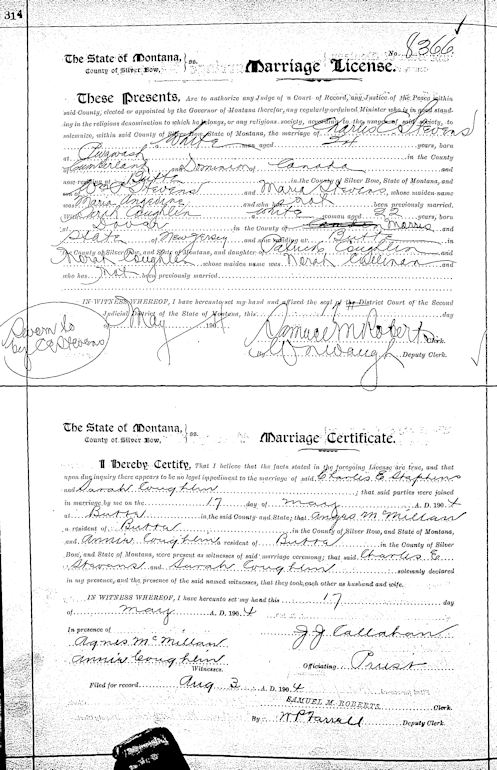 314
No. 8366
The State of Montana, } ss.
County of Silver Bow,
Marriage License.
These Presents, Are to authorize any Judge of a Court of Record, any Justice of the Peace within
said County, elected or appointed by the Governor of Montana therefor, any regularly ordained Minister who is in good stand-
ing in the religious denomination to which he belongs, or any religious society, according to the usages of said society, to
solemnize, within said County of Silver Bow, State of Montana, the marriage of Charles E Stevens
White man aged 34 years, born
at Pugwash in the County
Cumberland and Dominion of Canada and
now residing at Butte in the County of Silver Bow, State of Montana, and
Stevens and Maria Stevens, whose maiden name
was Maria Angeline and who has not been previously married.
With Sarah Coughlin white woman aged 22 years, born
at Dover in the County of Morris
State of New Jersey and now residing at Butte in
the County of Silver Bow, State of Montana, and daughter of Patrick Coughlin
Norah Coughlin whose maiden name was Norah
who has not been previously married.
IN WITNESS WHEREOF, I have hereunto set my hand and affixed the seal of the District Court of the Second
Judicial District of the State of Montana, this 17th day
of May 1904.
Sworn to
by C E Stevens
Samuel M Roberts Clerk.
By Deputy Clerk.
The State of Montana, } ss.
County of Silver Bow,
Marriage Certificate.
I Hereby Certify, That I believe that the facts stated in the foregoing License are true, and that
upon due inquiry there appears to be no legal impediment to the marriage of said Charles E Stephens
and Sarah Coughlin; that said parties were joined
in marriage by me on the 17 day of May A. D. 1904
at Butte in the said County and State; that Agnes McMillan
a resident of Butte in the County of Silver Bow, and State of Montana,
and Annie Coughlin a resident of Butte in the County of Silver
Bow, and State of Montana, were present as witnesses of said marriage ceremony; that said Charles E
Stevens and Sarah Coughlin solemnly declared
in my presence, and the presence of the said named witnesses, that they took each other as husband and wife.
IN WITNESS WHEREOF, I have hereunto set my hand this 17 day
of May A. D. 1904
In presence of
J J Callahan
Agnes McMillan
Annie Coughlin
Witnesses.
Officiating Priest
Filed for record Aug 3 A. D. 1904
SAMUEL M. ROBERTS Clerk.
By W P Farrell Deputy Clerk.